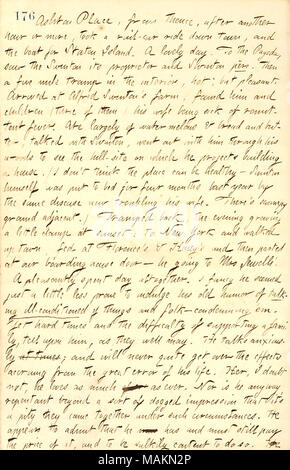 176
Ashton Place, from thence, after another
hour or more, took a rail-car ride down town, and
the boat for Staten Island. A lovely day. To the
saw the Swinton its proprietor and Swinton pere. then
a five mile tramp in the interior, hot; but pleasant.
Arrived at Alfred Swinton's farm, found him and
children (three of them) his wife being sick of remit-
tent fever. Ate largely of water melons & bread and but-
ter; talked with Swinton, went out with him through his
woods to see the hill-site on which he projects building
a house. (I don't think the place can be healthy — Swinton
himself was put to bed for four months last year by
the same disease now troubling his wife. There's swampy
ground adjacent.) Tramped back, the evening growing
a little damp at sunset, to New York and walked
up town. and then parted
at our boarding house door — he going to Mrs Jewell's.
A pleasantly spent day altogether. I fancy he seemed
just a little less prone to indulge his old humor of talk-
ing ill-conditioned of things and folk — condemning em.
Yet hard times and the difficulty of supporting a fami-
ly, tell upon him, as they well may. He talks anxious-
ly at times; and will never quite get over the effects
accruing from the great error of his life. Her, I doubt
not, he loves as much as ever. Nor is he anyway
repentant beyond a sort of dogged impression that 'tis
a pity they came together under such circumstances. He
appears to admit that he has and must still pay
the price of it, and to be sulkily content to do so.
alamy
Image ID: MAKN2P
www.alamy.com